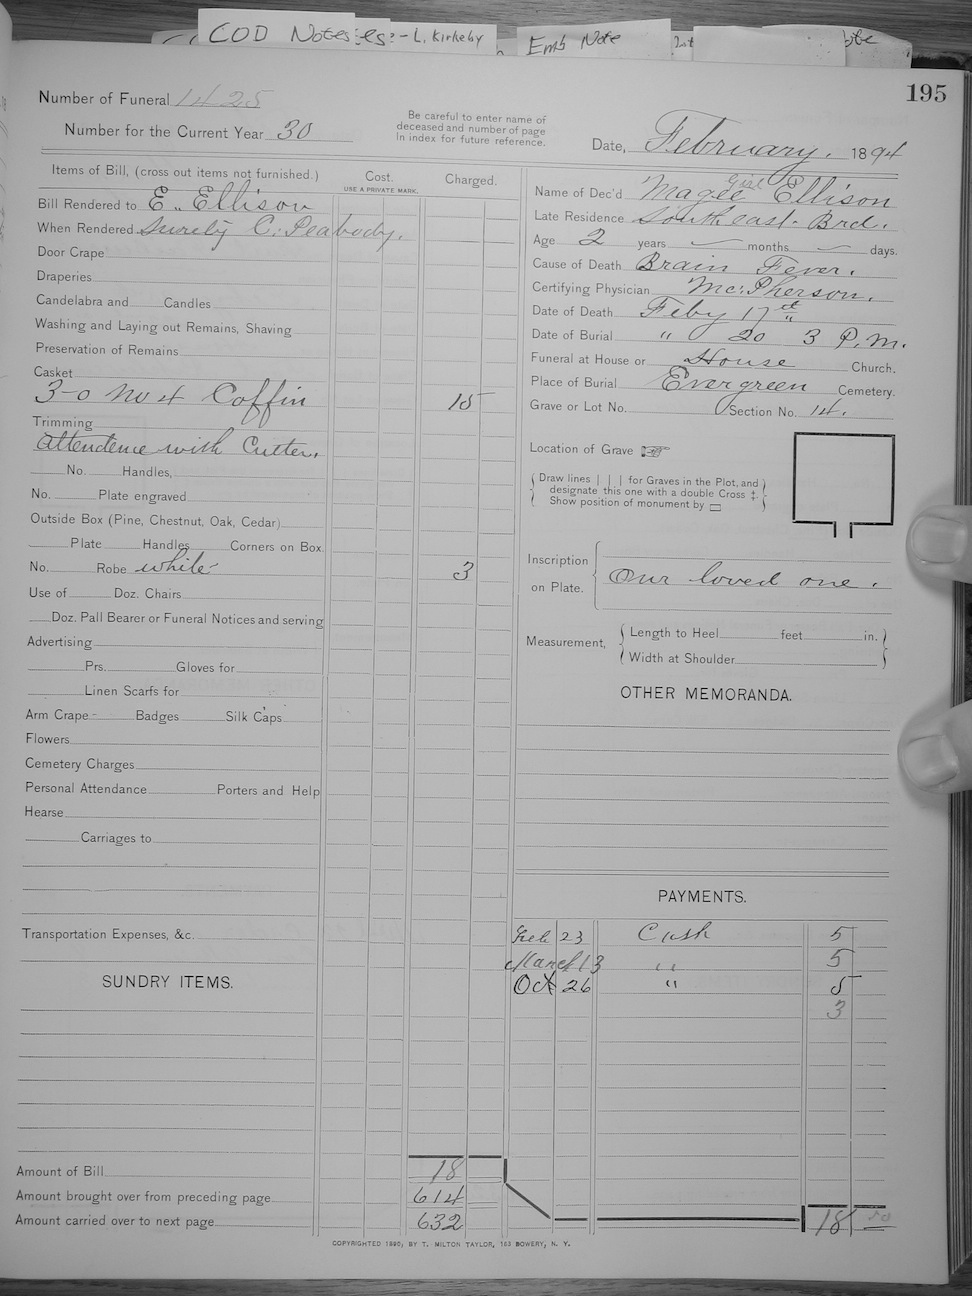 COD Notes es: - L. Kirkeby
Emb Note
195
Number of Funeral 1425
Number for the Current Year 30
Be careful to enter name of
deceased and number of page
in index for future reference.
Date, February. 1894
Items of Bill, (cross out items not furnished.)
Cost.
USE A PRIVATE MARK.
Charged.
Bill Rendered to E. Ellison
When Rendered Surety C. Peabody.
Door Crape
Draperies
Candelabra and Candles
Washing and Laying out Remains, Shaving
Preservation of Remains
Casket
3-0 No 4 Coffin 15
Trimming
Attendence with Cutter.
No. Handles,
No. Plate engraved
Outside Box (Pine, Chestnut, Oak, Cedar)
Plate Handles Corners on Box.
No. Robe white 3
Use of Doz. Chairs
Doz. Pall Bearer or Funeral Notices and serving
Advertising
Prs. Gloves for
Linen Scarfs for
Arm Crape Badges Silk Caps
Flowers
Cemetery Charges
Personal Attendance Porters and Help
Hearse
Carriages to
Transportation Expenses, &c.
SUNDRY ITEMS.
Amount of Bill 18
Amount brought over from preceding page 614
Amount carried over to next page 632
Girl
Name of Dec'd Magee Ellison
Late Residence South east. Brd.
Age 2 years months days.
Cause of Death Brain Fever.
Certifying Physician McPherson.
Date of Death Feby 17
Date of Burial " 20 3 P.M.
Funeral at House or House Church.
Place of Burial Evergreen Cemetery.
Grave or Lot No. Section No. 14.
Location of Grave
Draw lines | | | for Graves in the Plot, and
designate this one with a double Cross ‡.
Show position of monument by ▭
Inscription
on Plate.
Our loved one.
Measurement,
Length to Heel feet in.
Width at Shoulder
OTHER MEMORANDA.
PAYMENTS.
Feb 23 Cash 5
March 13 " 5
Oct 26 " 5
3
18
COPYRIGHTED 1890, BY T. MILTON TAYLOR, 163 BOWERY, N. Y.